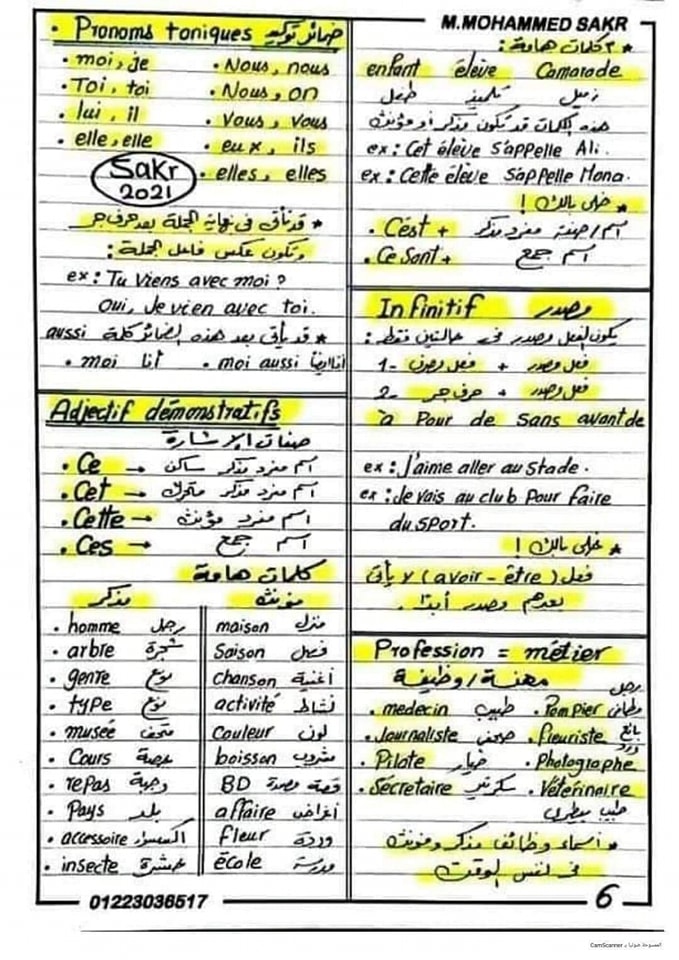 M.MOHAMMED SAKR
• Pronoms toniques ضمائر توكيد
• moi, je • Nous, nous
• Toi, toi • Nous, on
• lui, il • Vous, vous
• elle, elle • eux, ils
• elles, elles
Sakr
2021
* قد تأتى فى نهاية الجملة بعد حرف جر
وتكون عكس فاعل الجملة :
ex : Tu viens avec moi ?
Oui, Je vien avec toi.
* قد يأتى بعد هذه الضمائر كلمة aussi
• moi أنا • moi aussi أنا ايضاً
Adjectif démonstratifs
صفات الإشارة
• Ce → اسم مفرد مذكر ساكن
• Cet → اسم مفرد مذكر متحرك
• Cette → اسم مفرد مؤنث
• Ces → اسم جمع
كلمات هامة
مذكر مؤنث
• homme رجل maison منزل
• arbre شجرة Saison فصل
• genre نوع chanson أغنية
• type نوع activité نشاط
• musée متحف Couleur لون
• Cours حصة boisson مشروب
• repas وجبة BD قصة مصورة
• Pays بلد affaire أغراض
• accessoire اكسسوار fleur وردة
• insecte حشرة école مدرسة
* ٣ كلمات هامة :
enfant élève Camarade
طفل تلميذ زميل
هذه الكلمات قد تكون مذكر أو مؤنث
ex : Cet élève s'appelle Ali.
ex : Cette élève s'appelle Mona.
* خلى بالك !
• C'est + اسم / صفة مفرد مذكر
• Ce sont + اسم جمع
Infinitif مصدر
يكون الفعل مصدر فى حالتين فقط :
1- فعل مصرف + فعل مصدر
2- حرف جر + فعل مصدر
à Pour de Sans avant de
ex : J'aime aller au stade.
ex : Je vais au club Pour faire
du sport.
* خلى بالك !
فعل (avoir - être) لا يأتى
بعدهم مصدر أبدًا.
Profession = métier
مهنة / وظيفة
• medecin طبيب • Pompier رجل مطافى
• Journaliste صحفى • fleuriste بائع ورد
• Pilote طيار • Photographe
• Secretaire سكرتير • Vétérinaire
طبيب بيطرى
* أسماء وظائف مذكر ومؤنث
فى نفس الوقت
01223036517
6
CamScanner